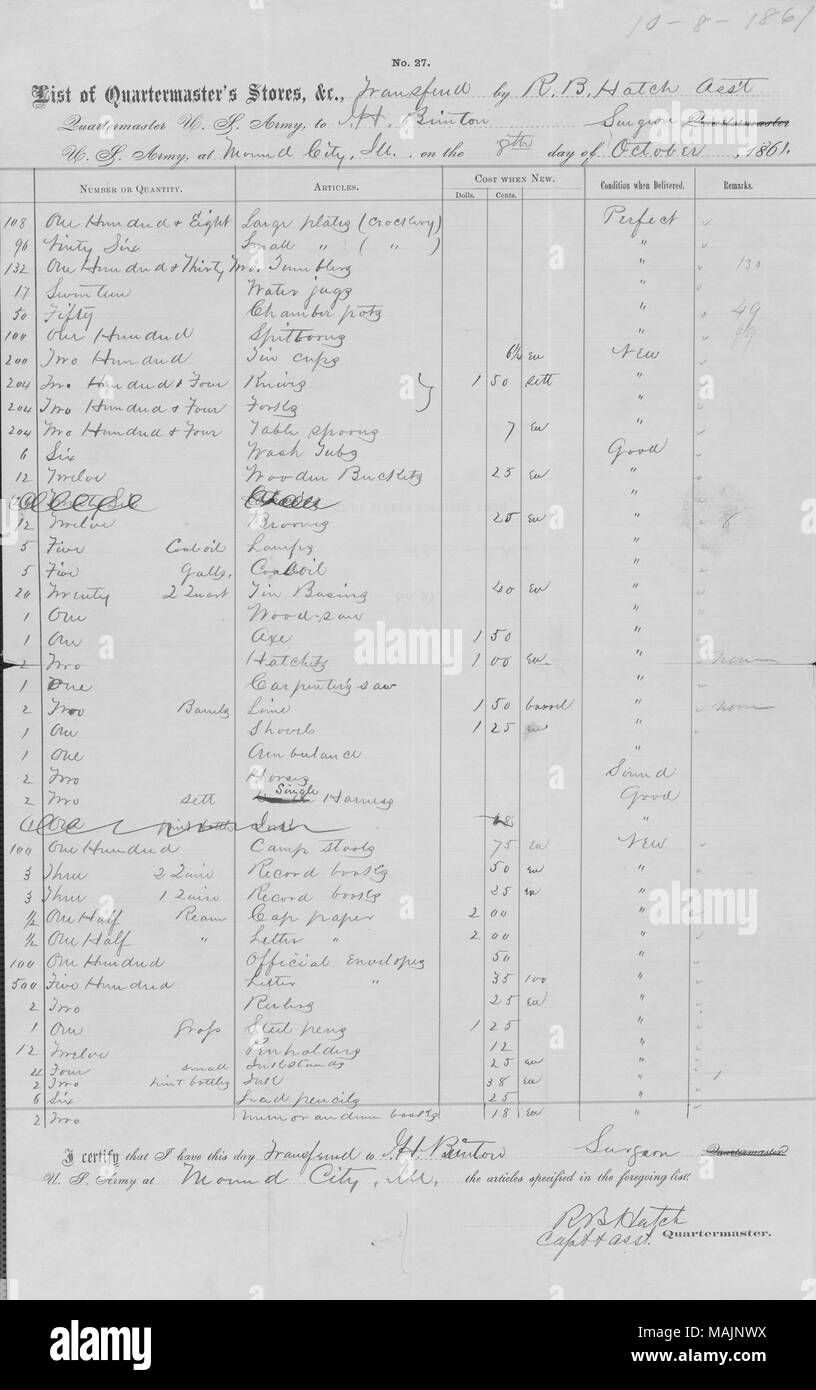 10-8-1861
No. 27.
List of Quartermaster's Stores, &c., Transferred by R. B. Hatch Ass't
Quartermaster U. S. Army, to J. H. Brinton Surgeon Quartermaster
U. S. Army, at Mound City, Ill. on the 8th day of October, 1861.
NUMBER OR QUANTITY. ARTICLES. COST WHEN NEW. Condition when Delivered. Remarks.
Dolls. Cents.
108 One Hundred & Eight Large plates (Crockery) Perfect
96 Ninety Six Small " ( " ) "
132 One Hundred & Thirty Two Tumblers " 130
17 Seventeen Water jugs "
50 Fifty Chamber pots " 49
100 One Hundred Spittoons " 99
200 Two Hundred Tin cups 6¼ ea New
204 Two Hundred & Four Knives } 1 50 sett "
204 Two Hundred & Four Forks "
204 Two Hundred & Four Table spoons 7 ea "
6 Six Wash Tubs Good
12 Twelve Wooden Buckets 25 ea "
Twenty Six Chairs "
12 Twelve Brooms 25 ea " 8
5 Five Coal oil Lamps "
5 Five Galls. Coal oil "
20 Twenty 2 Quart Tin Basins 40 ea "
1 One Wood-saw "
1 One Axe 1 50 "
2 Two Hatchets 1 00 ea " none
1 One Carpenter's saw "
2 Two Barrels Lime 1 50 barrel " none
1 One Shovel 1 25 ea "
1 One Ambulance "
2 Two Horses Sound
2 Two sett Single Harness Good
1 One pint bottle Ink 38 "
100 One Hundred Camp stools 75 ea New
3 Three 2 Quire Record books 50 ea "
3 Three 1 Quire Record books 25 ea "
½ One Half Ream Cap paper 2 00 "
½ One Half " Letter " 2 00 "
100 One Hundred Official Envelopes 50 "
500 Five Hundred Letter " 35 100 "
2 Two Rulers 25 ea "
1 One gross Steel pens 1 25 "
12 Twelve Penholders 12 "
4 Four small Inkstands 25 ea "
2 Two pint bottles Ink 38 ea " 1
6 Six Lead pencils 25 "
2 Two memorandum books 18 ea "
I certify that I have this day Transferred to J. H. Brinton Surgeon Quartermaster
U. S. Army at Mound City, Ill, the articles specified in the foregoing list.
R B Hatch
Capt & Asst. Quartermaster.
alamy
Image ID: MAJNWX
www.alamy.com